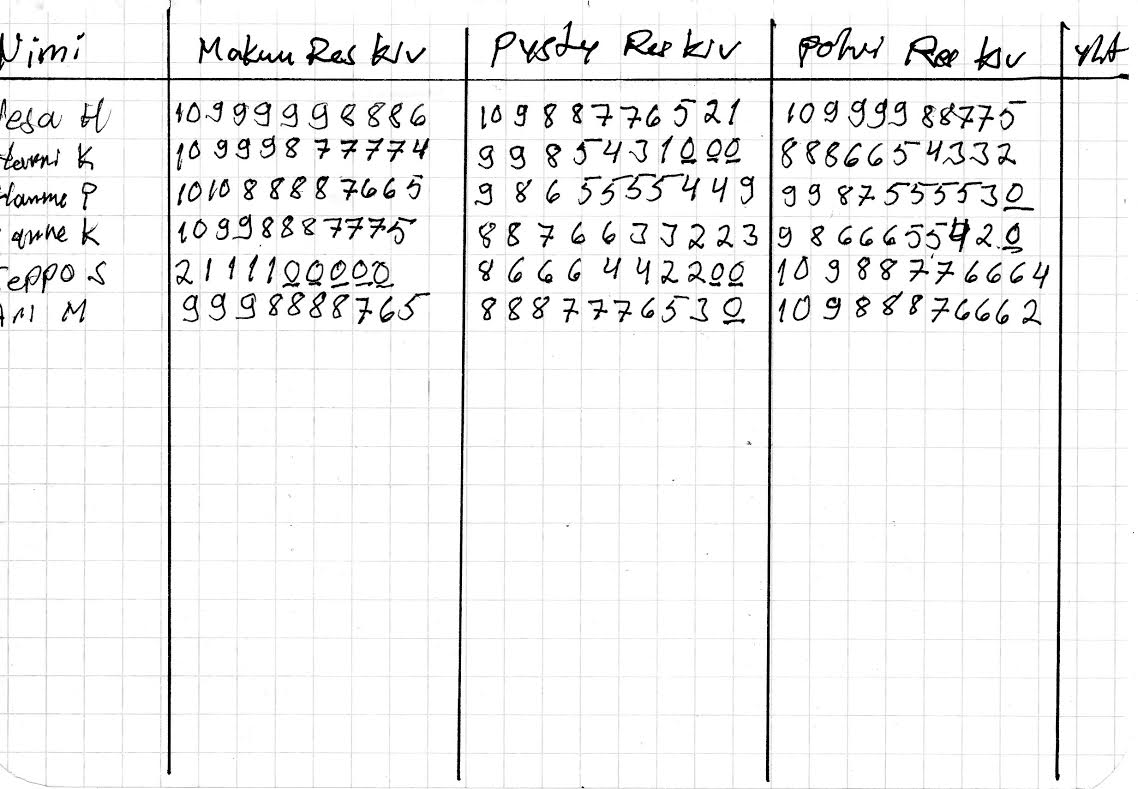 Nimi Makuu Res kiv Pysty Res kiv polvi Res kiv yht
Vesa H 10999998886 10988776521 10999988775
K 10999877774 99854431000 8886654332
Hannne P 101088887665 9865555449 99875555530
K 10998887775 8876633223 9866655420
Teppo S 2111100000 8666442200 10988776664
Ari M 9998888765 8887776530 10988876662